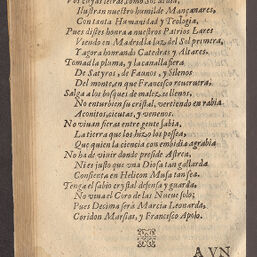 Ilustran nuestro humilde Mançanares,
Con tanta Humanidad y Teologia,
Pues distes honra a nuestros Patrios Lares
Viendo en Madrid la luz, del Sol primera,
Y agora honrando Catedras y Altares.
Tomad la pluma, y la canalla fiera
De Satyros, de Faunos, y Silenos
Del monte, en que Francisco
Salga a los bosques de malezas llenos.
No enturbien su cristal, vertiendo en rabia
Aconitos, cicutas, y venenos.
No vivan fieras entre gente sabia,
La tierra que los hizo los possea,
Que quien la ciencia con embidia agrabia
No ha de vivir donde preside Astrea,
Ni es justo que una Diosa tan gallarda
Consienta en Helicon Musa tan fea.
Tenga el sabio crystal defensa y guarda,
No viva el Coro de las Nueve solo;
Pues Decima será Marcia Leonarda,
Coridon Marsias, y Francisco Apolo.
AVN